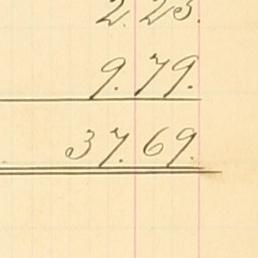 2.23.
9.79.
37.69.